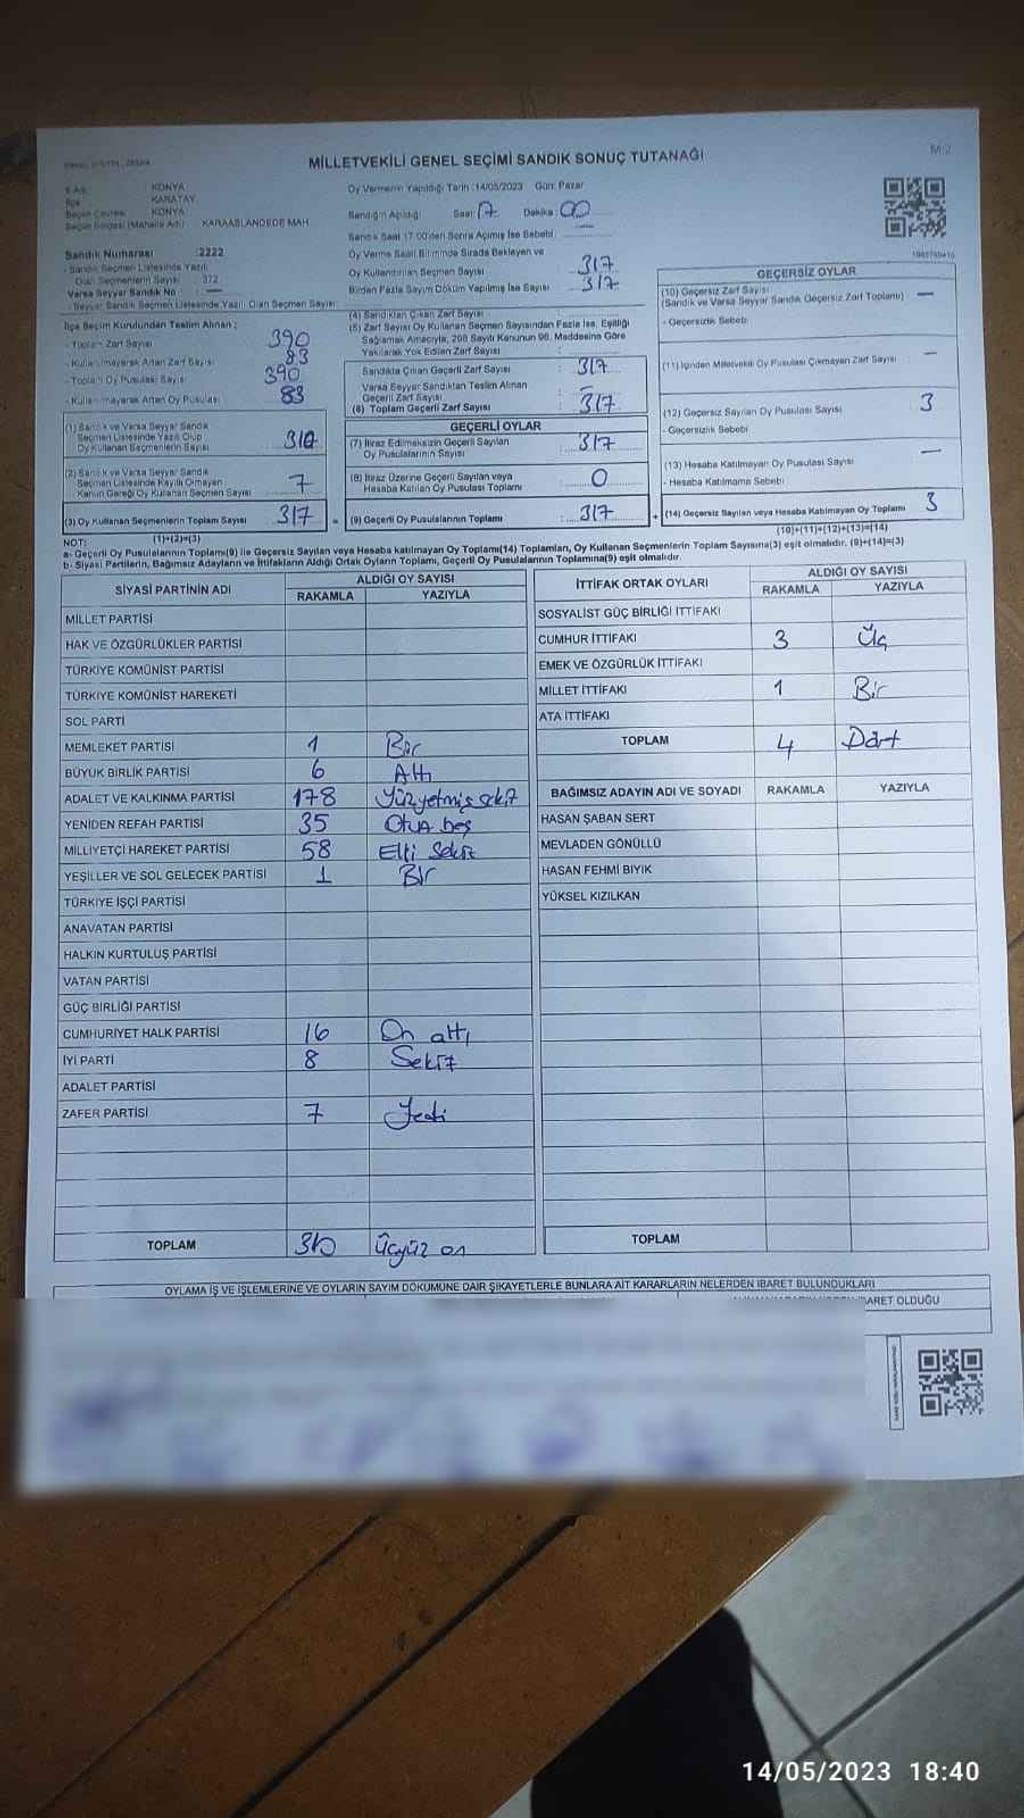 MİLLETVEKİLİ GENEL SEÇİMİ SANDIK SONUÇ TUTANAĞI
KONYA
İlçe KARATAY
KONYA
Seçim Bölgesi (Mahalle Adı) KARAASLANDEDE MAH
Sandık Numarası :2222
- Sandık Seçmen Listesinde Yazılı
Olan Seçmenlerin Sayısı 372
Varsa Seyyar Sandık No :
- Seyyar Sandık Seçmen Listesinde Yazılı Olan Seçmen Sayısı
Oy Vermenin Yapıldığı Tarih :14/05/2023 Gün: Pazar
Sandığın Açıldığı Saat: 17 Dakika: 00
Sandık Saat 17:00'den Sonra Açılmış İse Sebebi: —
Oy Verme Saati Bitiminde Sırada Bekleyen ve
Oy Kullandırılan Seçmen Sayısı 317
Birden Fazla Sayım Döküm Yapılmış İse Sayısı 317
İlçe Seçim Kurulundan Teslim Alınan ;
- Toplam Zarf Sayısı 390
- Kullanılmayarak Artan Zarf Sayısı 83
- Toplam Oy Pusulası Sayısı 390
- Kullanılmayarak Artan Oy Pusulası 83
(1) Sandık ve Varsa Seyyar Sandık
Seçmen Listesinde Yazılı Olup
Oy Kullanan Seçmenlerin Sayısı 310
(2) Sandık ve Varsa Seyyar Sandık
Seçmen Listesinde Kayıtlı Olmayan
Kanun Gereği Oy Kullanan Seçmen Sayısı 7
(3) Oy Kullanan Seçmenlerin Toplam Sayısı 317
(1)+(2)=(3)
(4) Sandıktan Çıkan Zarf Sayısı
(5) Zarf Sayısı Oy Kullanan Seçmen Sayısından Fazla İse, Eşitliği
Sağlamak Amacıyla, 298 Sayılı Kanunun 98. Maddesine Göre
Yakılarak Yok Edilen Zarf Sayısı
Sandıkta Çıkan Geçerli Zarf Sayısı : 317
Varsa Seyyar Sandıktan Teslim Alınan
Geçerli Zarf Sayısı : —
(6) Toplam Geçerli Zarf Sayısı : 317
GEÇERLİ OYLAR
(7) İtiraz Edilmeksizin Geçerli Sayılan
Oy Pusulalarının Sayısı : 317
(8) İtiraz Üzerine Geçerli Sayılan veya
Hesaba Katılan Oy Pusulası Toplamı : 0
= (9) Geçerli Oy Pusulalarının Toplamı : 317
GEÇERSİZ OYLAR
(10) Geçersiz Zarf Sayısı —
(Sandık ve Varsa Seyyar Sandık Geçersiz Zarf Toplamı)
- Geçersizlik Sebebi
(11) İçinden Milletvekili Oy Pusulası Çıkmayan Zarf Sayısı —
(12) Geçersiz Sayılan Oy Pusulası Sayısı 3
- Geçersizlik Sebebi
(13) Hesaba Katılmayan Oy Pusulası Sayısı —
- Hesaba Katılmama Sebebi
+ (14) Geçersiz Sayılan veya Hesaba Katılmayan Oy Toplamı 3
(10)+(11)+(12)+(13)=(14)
NOT:
a- Geçerli Oy Pusulalarının Toplamı(9) ile Geçersiz Sayılan veya Hesaba katılmayan Oy Toplamı(14) Toplamları, Oy Kullanan Seçmenlerin Toplam Sayısına(3) eşit olmalıdır. (9)+(14)=(3)
b- Siyasi Partilerin, Bağımsız Adayların ve İttifakların Aldığı Ortak Oyların Toplamı, Geçerli Oy Pusulalarının Toplamına(9) eşit olmalıdır.
SİYASİ PARTİNİN ADI ALDIĞI OY SAYISI
RAKAMLA YAZIYLA
MİLLET PARTİSİ
HAK VE ÖZGÜRLÜKLER PARTİSİ
TÜRKİYE KOMÜNİST PARTİSİ
TÜRKİYE KOMÜNİST HAREKETİ
SOL PARTİ
MEMLEKET PARTİSİ 1 Bir
BÜYÜK BİRLİK PARTİSİ 6 Altı
ADALET VE KALKINMA PARTİSİ 178 Yüzyetmiş sekiz
YENİDEN REFAH PARTİSİ 35 Otuz beş
MİLLİYETÇİ HAREKET PARTİSİ 58 Elli Sekiz
YEŞİLLER VE SOL GELECEK PARTİSİ 1 Bir
TÜRKİYE İŞÇİ PARTİSİ
ANAVATAN PARTİSİ
HALKIN KURTULUŞ PARTİSİ
VATAN PARTİSİ
GÜÇ BİRLİĞİ PARTİSİ
CUMHURİYET HALK PARTİSİ 16 On altı
İYİ PARTİ 8 Sekiz
ADALET PARTİSİ
ZAFER PARTİSİ 7 Yedi
TOPLAM 310 Üçyüz on
İTTİFAK ORTAK OYLARI ALDIĞI OY SAYISI
RAKAMLA YAZIYLA
SOSYALİST GÜÇ BİRLİĞİ İTTİFAKI
CUMHUR İTTİFAKI 3 Üç
EMEK VE ÖZGÜRLÜK İTTİFAKI
MİLLET İTTİFAKI 1 Bir
ATA İTTİFAKI
TOPLAM 4 Dört
BAĞIMSIZ ADAYIN ADI VE SOYADI RAKAMLA YAZIYLA
HASAN ŞABAN SERT
MEVLADEN GÖNÜLLÜ
HASAN FEHMİ BIYIK
YÜKSEL KIZILKAN
TOPLAM
OYLAMA İŞ VE İŞLEMLERİNE VE OYLARIN SAYIM DÖKÜMÜNE DAİR ŞİKAYETLERLE BUNLARA AİT KARARLARIN NELERDEN İBARET BULUNDUKLARI
BARET OLDUĞU
14/05/2023 18:40